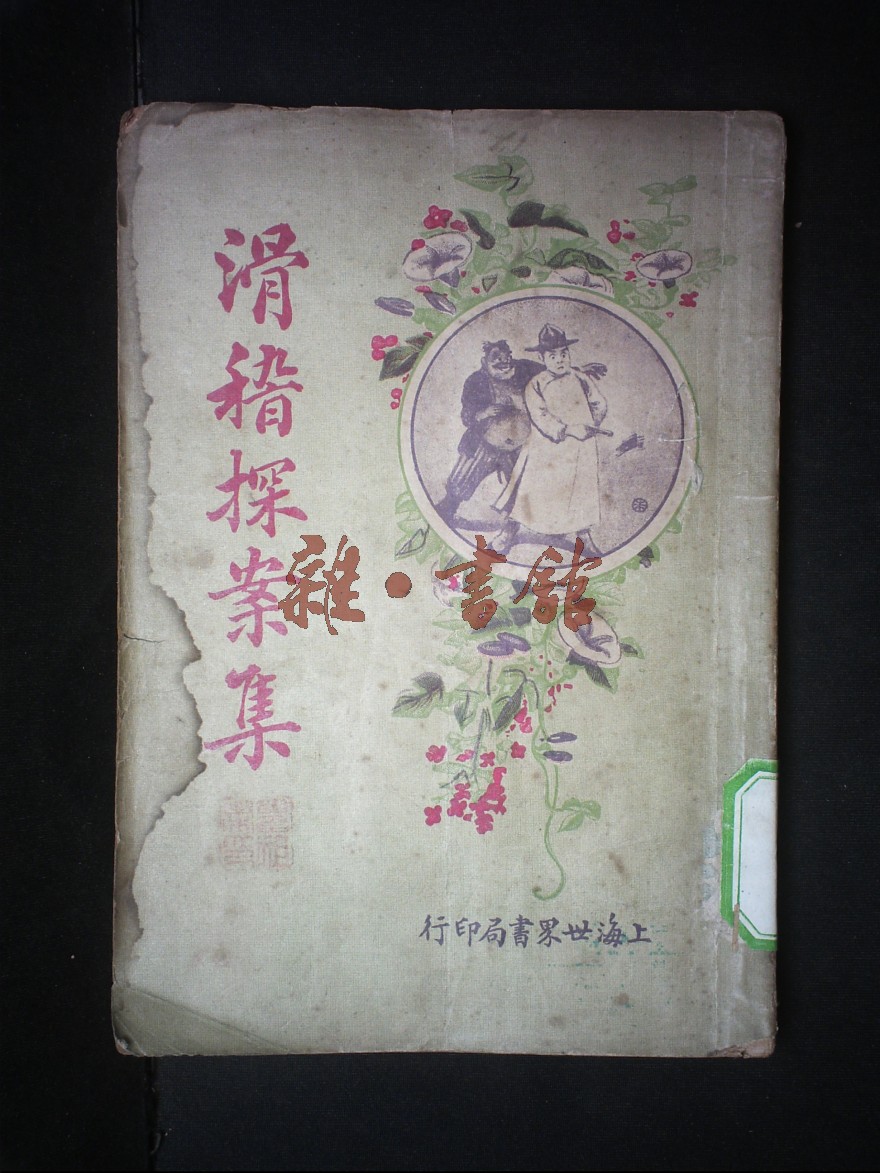 滑稽探案集
雜·書館
上海世界書局印行